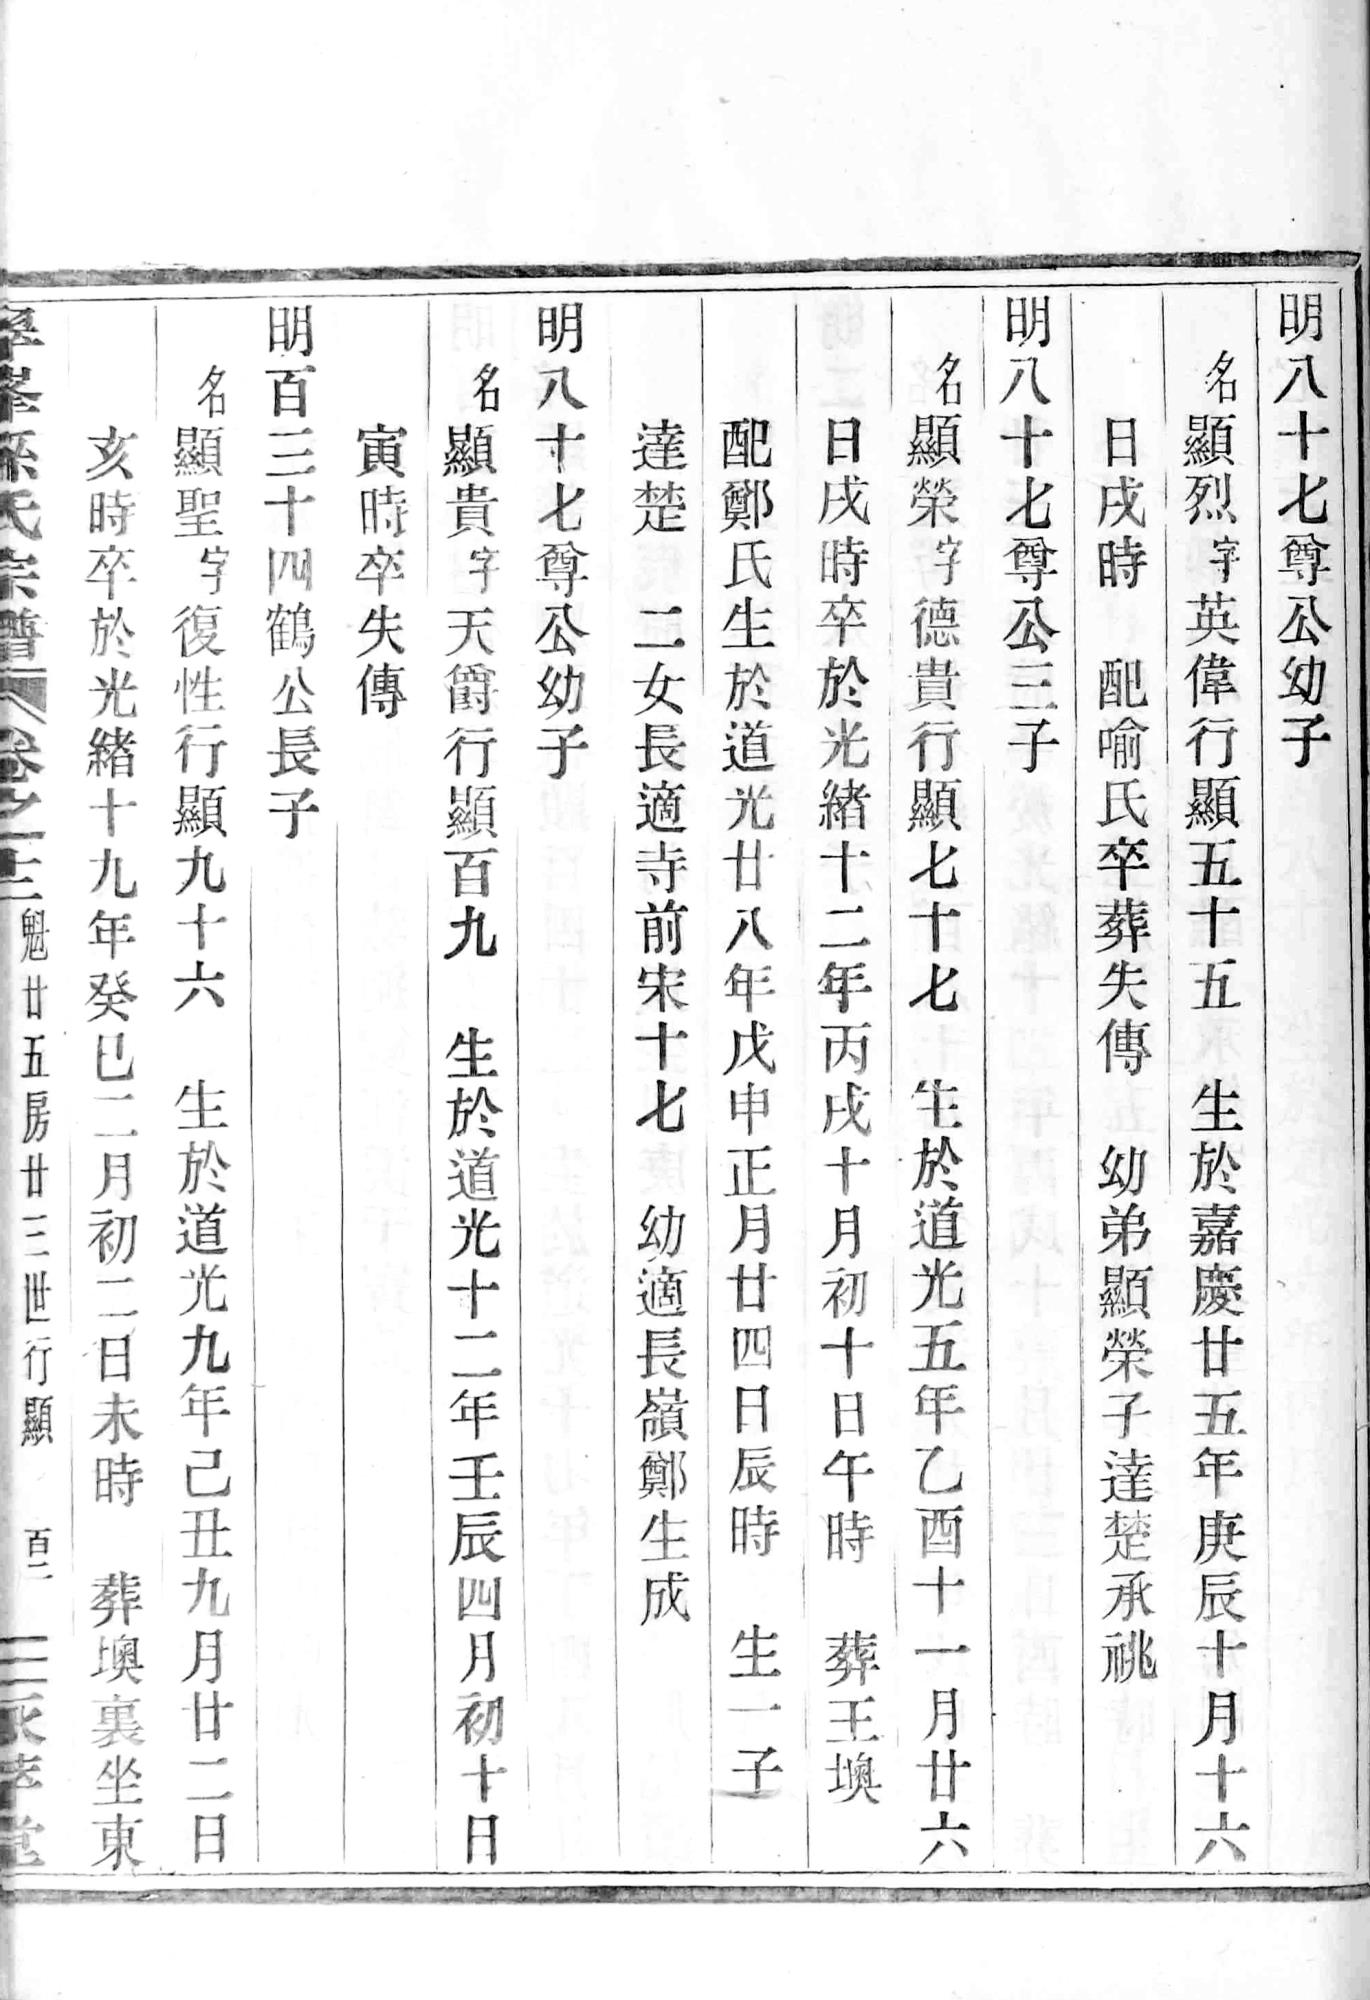 明八十七尊公幼子
名顯烈字英偉行顯五十五　生於嘉慶廿五年庚辰十月十六
日戌時　配喻氏卒葬失傳　幼弟顯榮子達楚承祧
明八十七尊公三子
名顯榮字德貴行顯七十七　生於道光五年乙酉十一月廿六
日戌時卒於光緒十二年丙戌十月初十日午時　葬王墺
配鄭氏生於道光廿八年戊申正月廿四日辰時　生一子
達楚　二女長適寺前宋十七　幼適長嶺鄭生成
明八十七尊公幼子
名顯貴字天爵行顯百九　生於道光十二年壬辰四月初十日
寅時卒失傳
明百三十四鶴公長子
名顯聖字復性行顯九十六　生於道光九年己丑九月廿二日
亥時卒於光緒十九年癸巳二月初二日未時　葬墺裏坐東
峯孫氏宗譜　卷之十三　魁廿五房廿三世行顯　百二　承孝堂